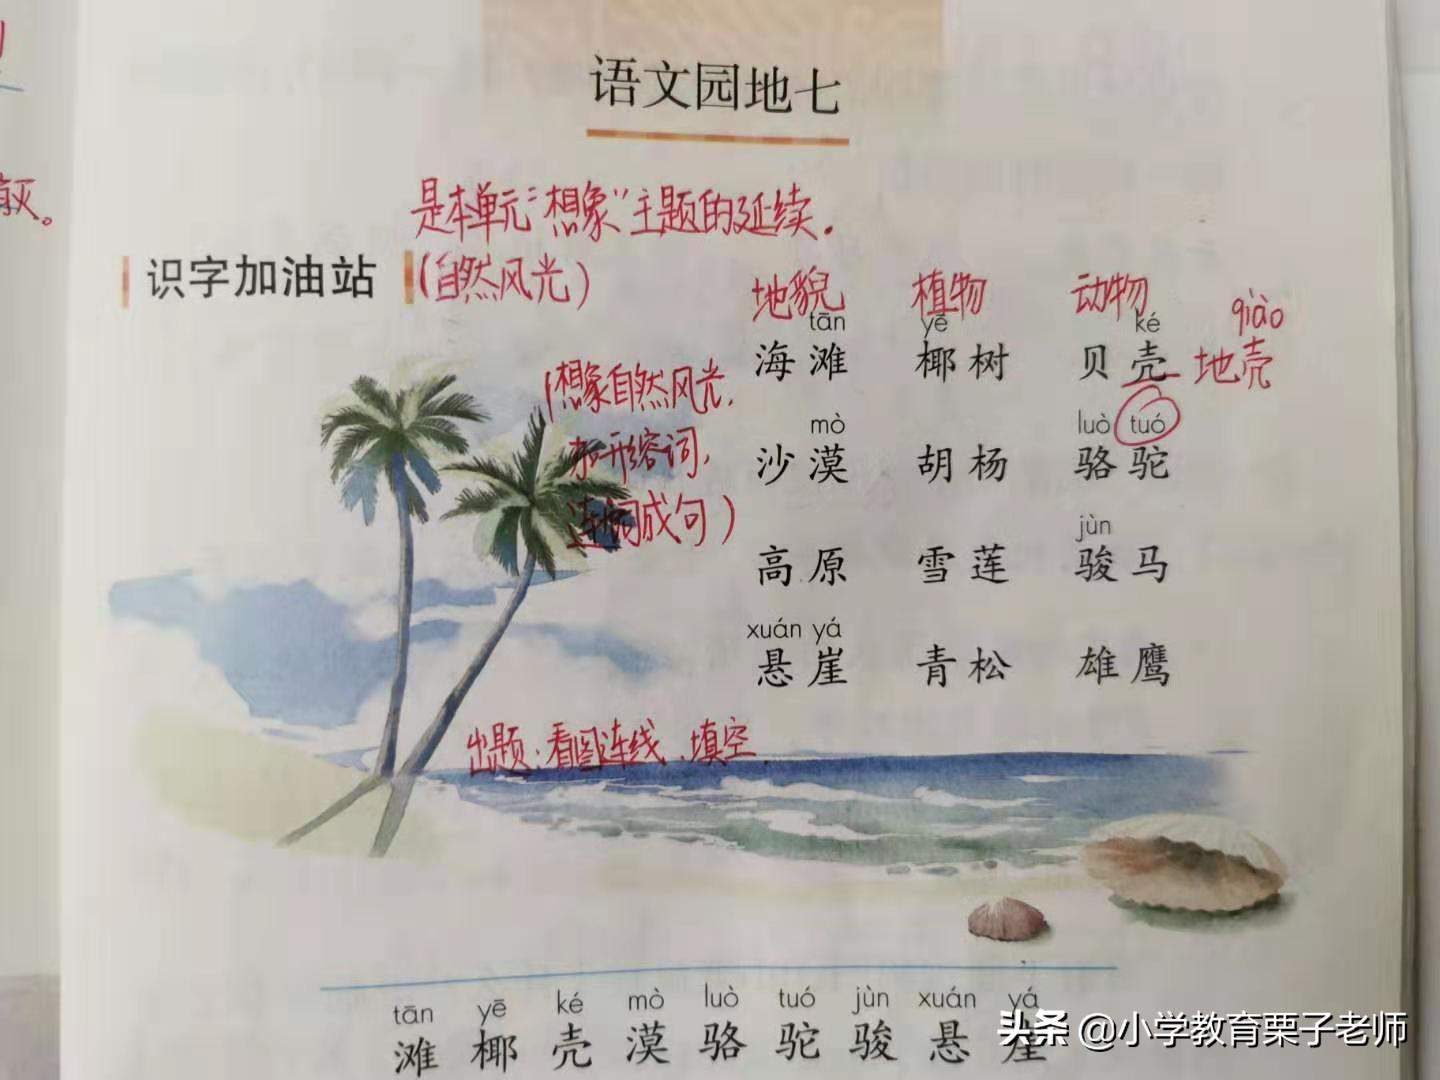 语文园地七
灭。
是本单元“想象”主题的延续.
识字加油站
(自然风光)
地貌 植物 动物
qiào
tān yē ké
海滩 椰树 贝壳 地壳
(想象自然风光,
加形容词,
连词成句)
mò luò tuó
沙漠 胡杨 骆驼
jùn
高原 雪莲 骏马
xuán yá
悬崖 青松 雄鹰
出题:看图连线、填空
tān yē ké mò luò tuó jùn xuán yá
滩 椰 壳 漠 骆 驼 骏 悬 崖
头条 @小学教育栗子老师